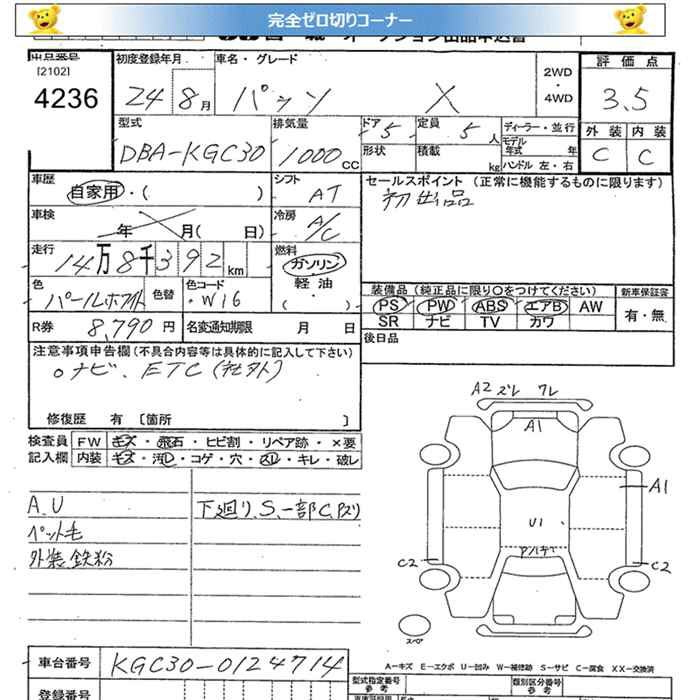 完全ゼロ切りコーナー
出品番号 初度登録年月 車名・グレード 2WD・4WD 評価点
[2102]
4236 24 8月 パッソ X 3.5
型式 排気量 ドア 5 定員 5人 ディーラー・並行 外装 内装
DBA-KGC30 1000cc 形状 積載 kg モデル年式 年 ハンドル 左・右 C C
車歴 自家用・( ) シフト AT セールスポイント (正常に機能するものに限ります)
初出品
車検 年 月( 日) 冷房 A/C
走行 14万8千392km 燃料 ガソリン 軽油 ・( )
色 パールホワイト 色替 色カラーコード・W16
装備品 (純正品に限り○をつけてください) 新車保証書
PS PWD ABS エアB AW 有・無
SR ナビ TV カワ
R券 8,790円 名変通知期限 月 日 後日品
注意事項申告欄 (不具合内容等は具体的に記入して下さい)
○ナビ、ETC(社外)
修復歴 有 〔箇所 〕
検査員 FW キズ・飛石・ヒビ割・リペア跡・×要
記入欄 内装 キズ・汚レ・コゲ・穴・スレ・キレ・破レ
A.U 下廻り.S.一部C.Pズリ
ペット毛
外装鉄粉
A2 ズレ ワレ
A1
A1
U1
アンテナ
C2 C2
スペア
A-キズ E-エクボ U-凹み W-補修跡 S-サビ C-腐食 XX-交換済
車台番号 KGC30-0124714 型式指定番号 参考 類別区分番号 参考
登録番号